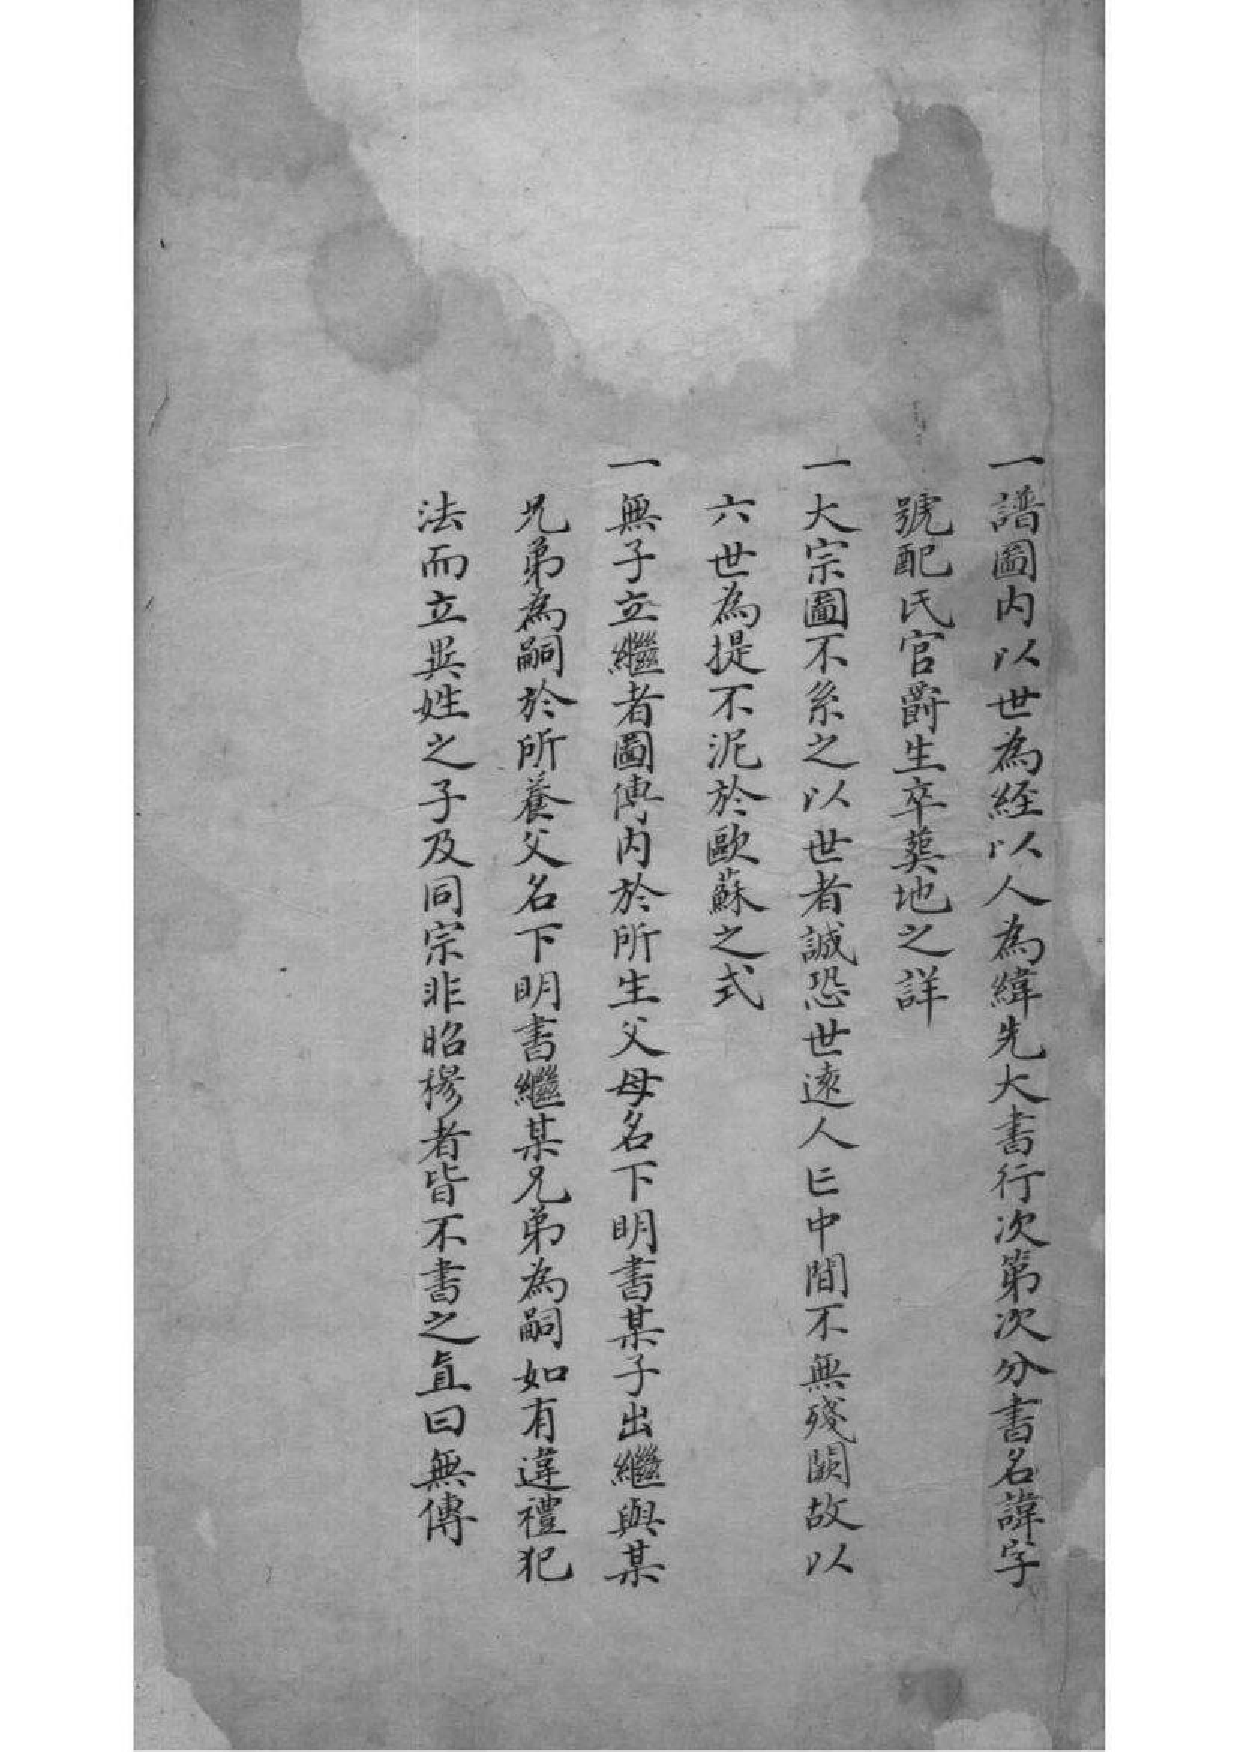 一譜圖内以世為経以人為緯先大書行次第次分書名諱字
號配氏官爵生卒塟地之詳
一大宗圖不系之以世者誠恐世遠人亡中間不無殘闕故以
六世為提不泥於歐蘇之式
一無子立繼者圖傳内於所生父母名下明書某子出繼與某
兄弟為嗣於所養父名下明書繼某兄弟為嗣如有違禮犯
法而立異姓之子及同宗非昭穆者皆不書之直曰無傳